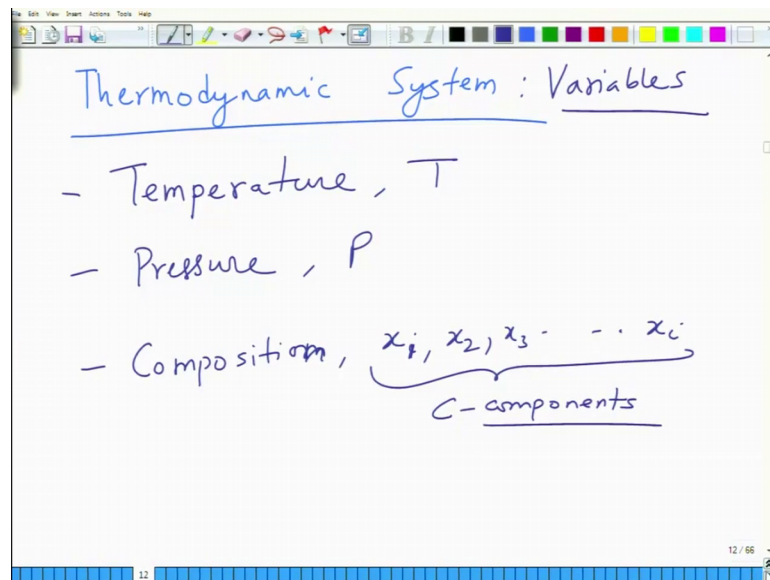 File Edit View Insert Actions Tools Help
B I
Thermodynamic System : Variables
- Temperature, T
- Pressure, P
- Composition, x₁, x₂, x₃ - - - . xᵢ
C-components
12 / 66
12